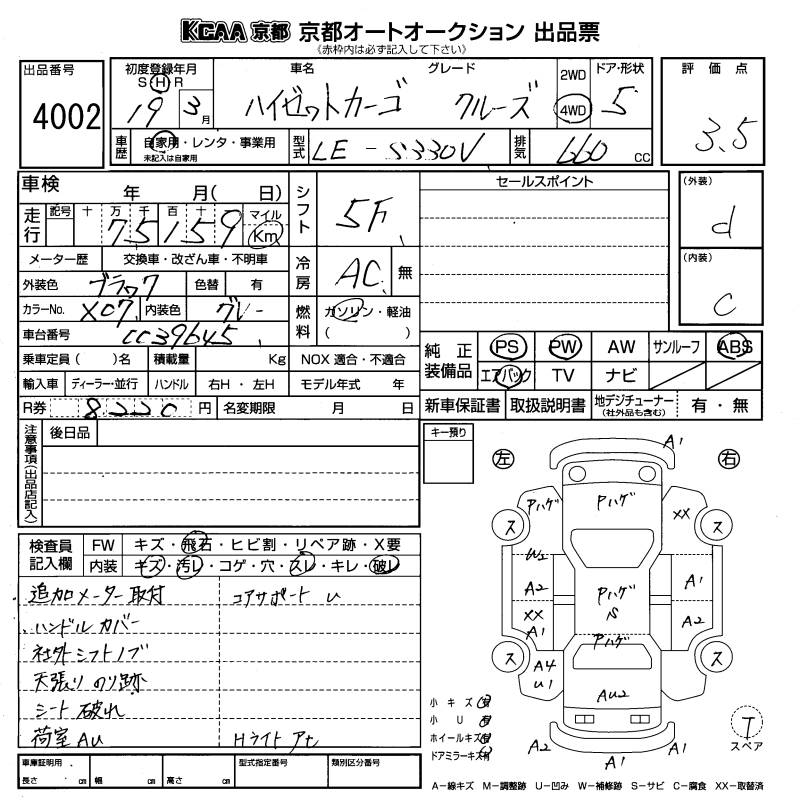 KCAA 京都 京都オートオークション 出品票
《赤枠内は必ず記入して下さい》
出品番号 4002
初度登録年月 S H R 19 3月
車名 ハイゼットカーゴ
グレード クルーズ
2WD 4WD
ドア・形状 5
評価点 3.5
車歴 自家用・レンタ・事業用
未記入は自家用
型式 LE-S330V
排気 660 CC
車検 年 月( 日)
走行 記号 十 万 千 百 十 一 75159 マイル Km
シフト 5F
セールスポイント
(外装) d
(内装) C
メーター歴 交換車・改ざん車・不明車
冷房 AC 無
外装色 ブラック 色替 有
カラーNo. XC7 内装色 グレー
燃料 ガソリン・軽油 ( )
車台番号 CC39645
乗車定員( )名 積載量 Kg NOX 適合・不適合
輸入車 ディーラー・並行 ハンドル 右H・左H モデル年式 年
R券 8220 円 名変期限 月 日
純正装備品 PS PW AW サンルーフ ABS
エアバック TV ナビ
新車保証書 取扱説明書 地デジチューナー(社外品も含む) 有・無
注意事項(出品店記入) 後日品
キー預り
左 右
検査員記入欄 FW キズ・飛石・ヒビ割・リペア跡・X要
内装 キズ・汚レ・コゲ・穴・スレ・キレ・破レ
追加メーター取付 コアサポート U
ハンドルカバー
社外シフトノブ
天張り のり跡
シート 破れ
荷室 AU Hライト
A1
Pハゲ Pハゲ XX
ス ス
W2
A2 Pハゲ A1
XX S A2
A1 Pハゲ
ス ス
A4
U1 AU2
A2 A1
小キズ 有
小U 有
ホイールキズ 有
ドアミラーキズ 有
T
スペア
車庫証明用 長さ cm 幅 cm 高さ cm 型式指定番号 類別区分番号
A−線キズ M−調整跡 U−凹み W−補修跡 S−サビ C−腐食 XX−取替済